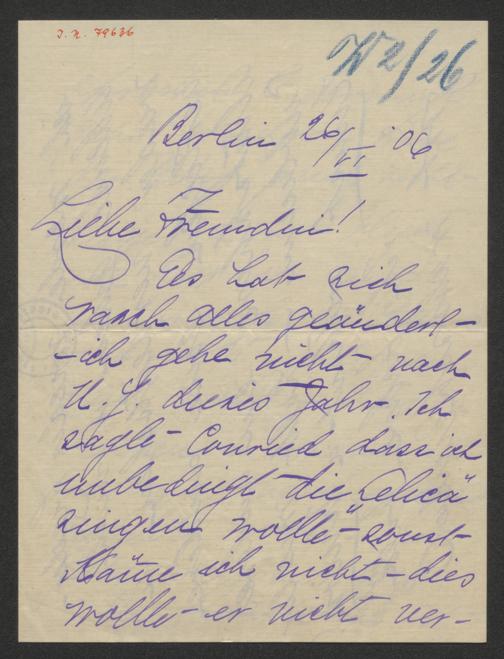 I. N. 79636
W2/26
Berlin 26/VI '06
Liebe Freundin!
Es hat sich
rasch alles geändert –
– ich gehe nicht nach
N. Y. dieses Jahr. Ich
sagte Conried dass ich
unbedingt die „Selica“
singen wolle – sonst
käme ich nicht – dies
wollte er nicht ver-